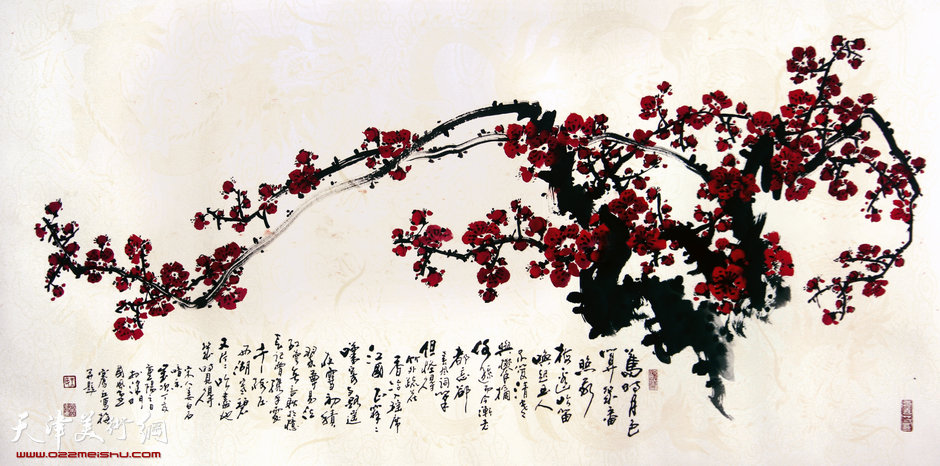 舊時月色
算幾番
照我
梅邊吹笛
喚起玉人
不管清寒
與攀摘
何遜而今漸老
都忘卻
春風詞筆
但怪得
竹外疏花
香冷入瑤席
江國正寂
寂
夜雪初積
翠尊易泣
紅萼無言耿相憶
長記曾攜手處
千樹壓
西湖寒碧
又片片吹盡也
幾時見得
宋人姜白石
天津美術網
www.022meishu.com